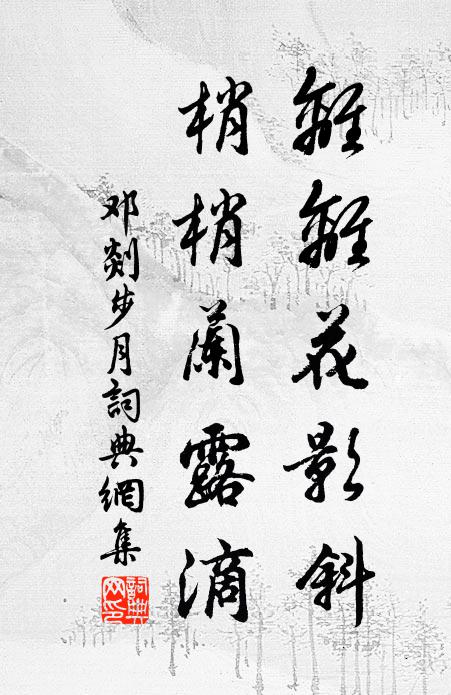 離離花影斜
梢梢蘭露滴
邓剡步月詞典網集
詞典